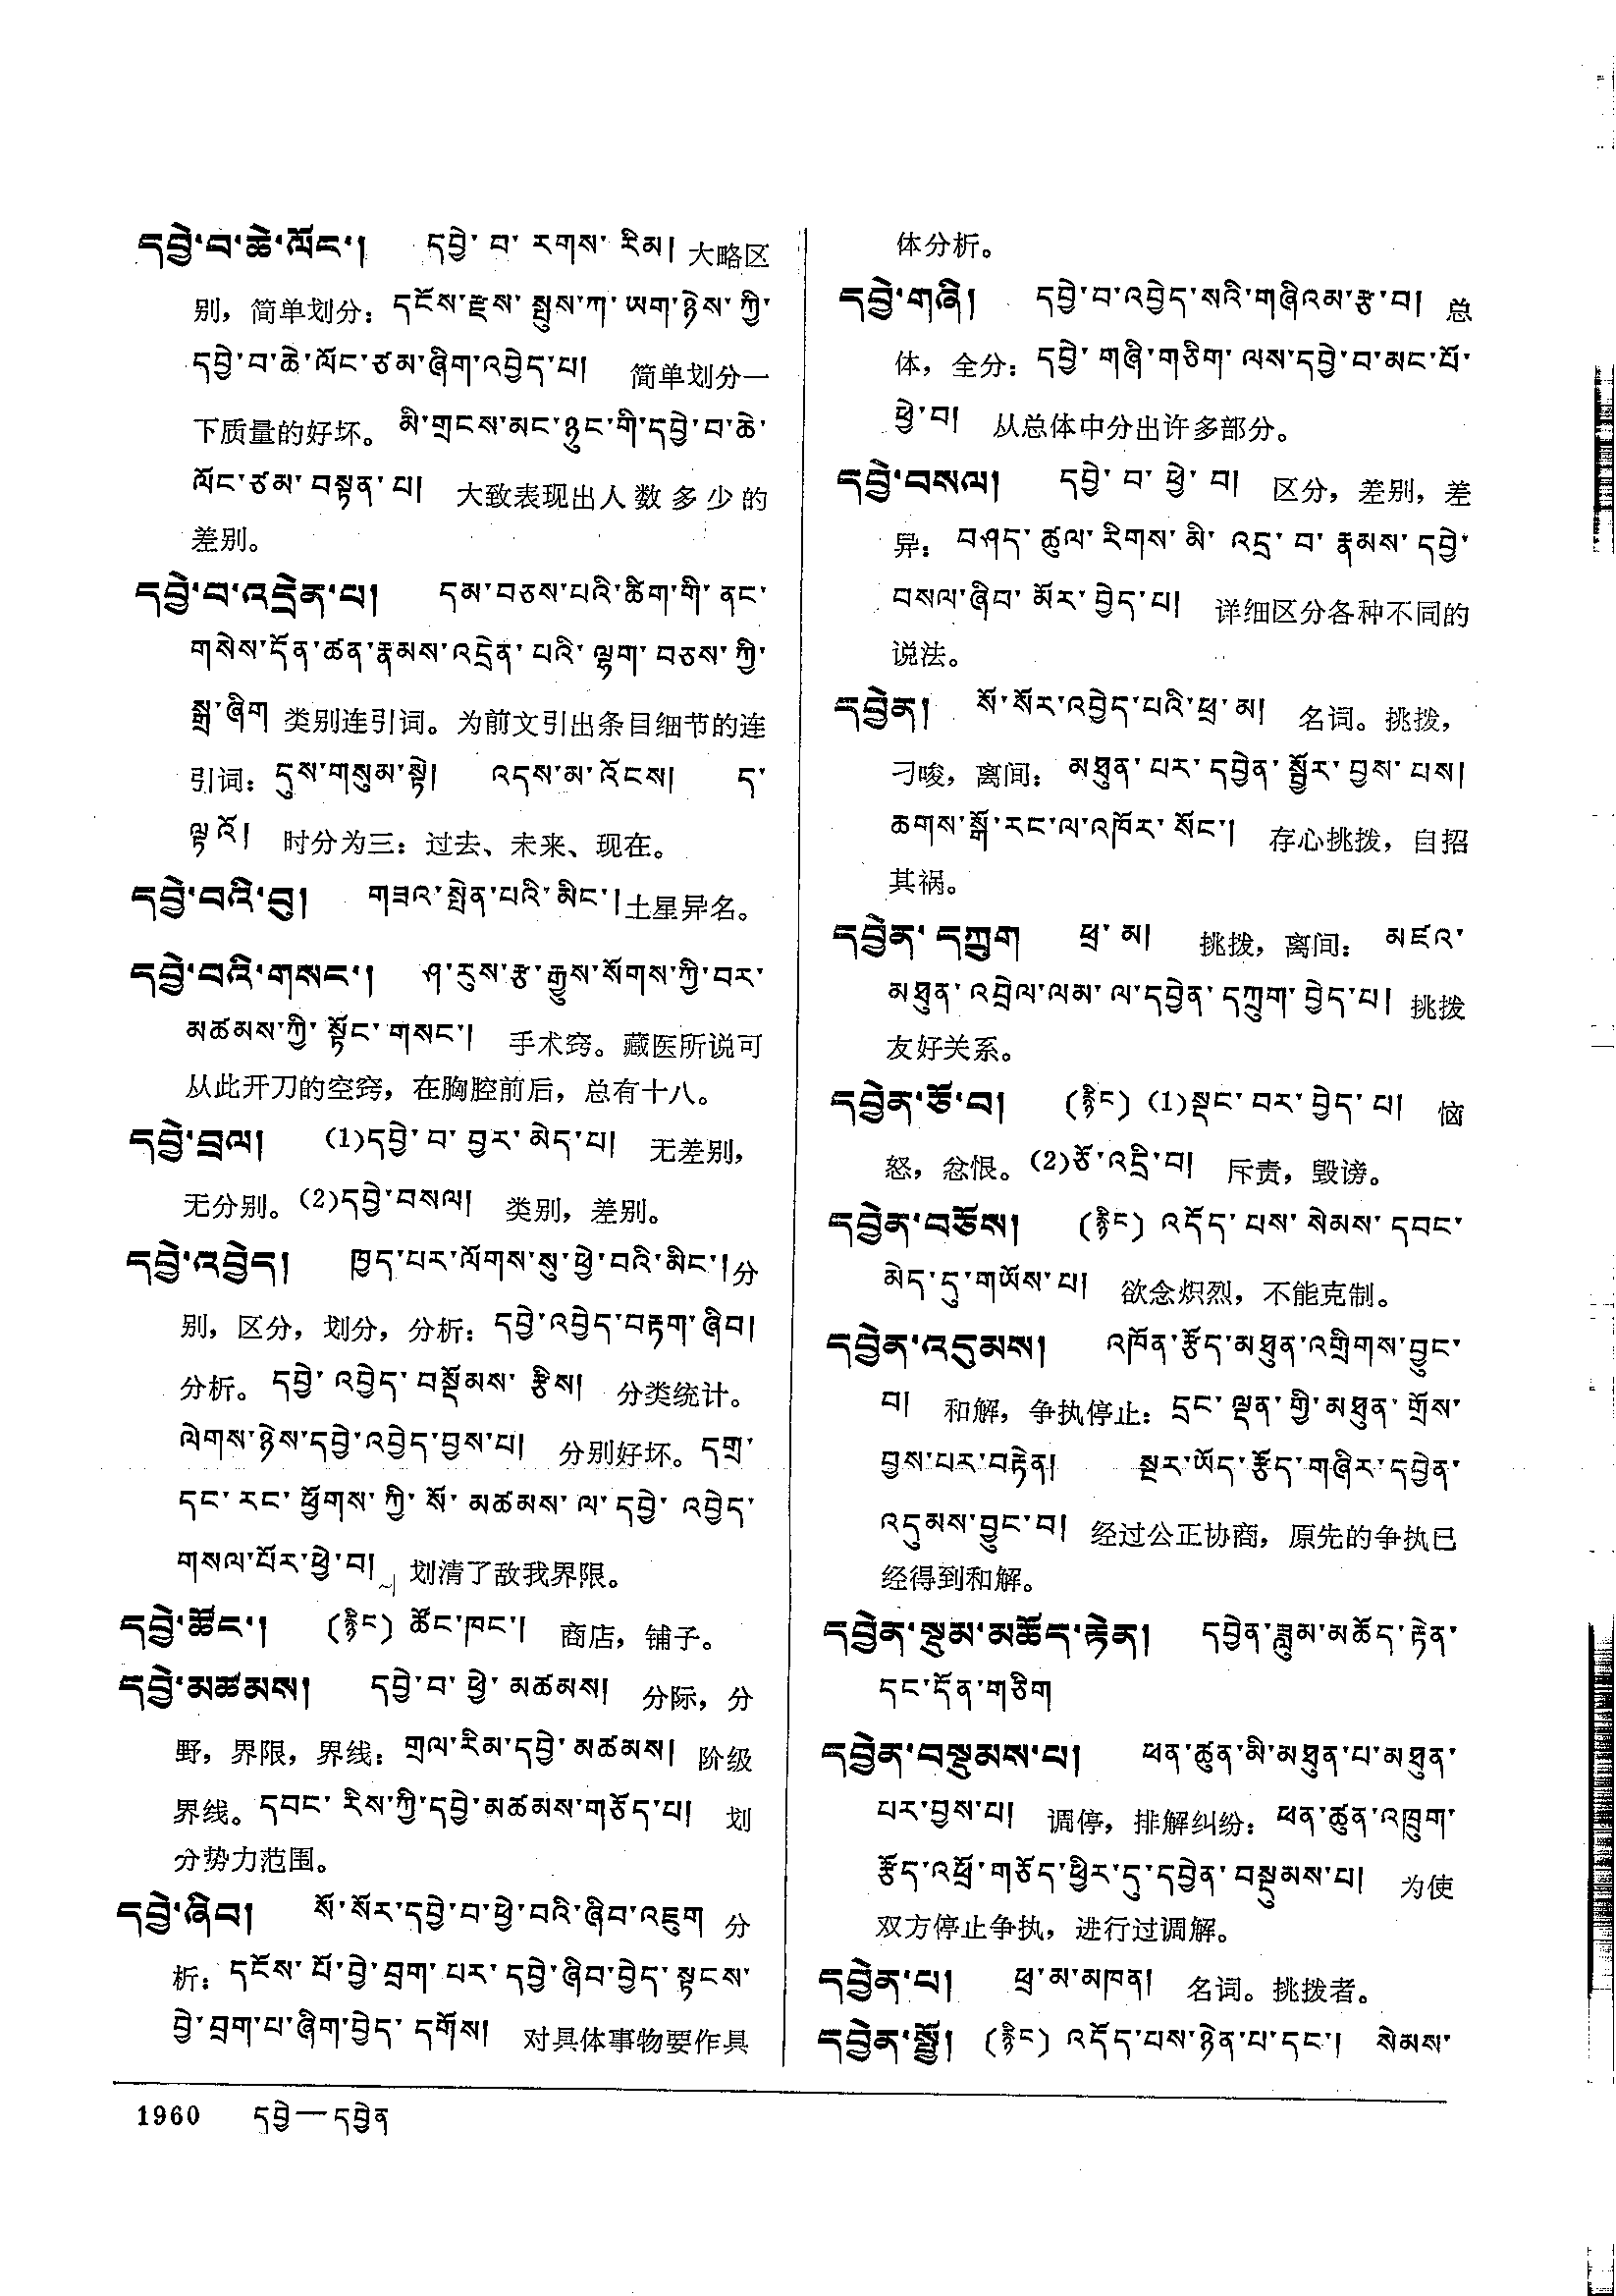 དབྱེ་བ་ཆེ་ལོང་། དབྱེ་བ་རགས་རིམ། 大略区
别，简单划分：དངོས་རྫས་སྤུས་ཀ་ཡག་ཉེས་ཀྱི་
དབྱེ་བ་ཆེ་ལོང་ཙམ་ཞིག་འབྱེད་པ། 简单划分一
下质量的好坏。མི་གྲངས་མང་ཉུང་གི་དབྱེ་བ་ཆེ་
ལོང་ཙམ་བསྟན་པ། 大致表现出人数多少的
差别。
དབྱེ་བ་འདྲེན་པ། དམ་བཅས་པའི་ཚིག་གི་ནང་
གསེས་དོན་ཚན་རྣམས་འདྲེན་པའི་ལྷག་བཅས་ཀྱི་
སྒྲ་ཞིག 类别连引词。为前文引出条目细节的连
引词：དུས་གསུམ་སྟེ། འདས་མ་འོངས། ད་
ལྟ་འོ། 时分为三：过去、未来、现在。
དབྱེ་བའི་བུ། གཟའ་སྤེན་པའི་མིང་། 土星异名。
དབྱེ་བའི་གསང་། ཤ་རུས་རྩ་རྒྱུས་སོགས་ཀྱི་བར་
མཚམས་ཀྱི་སྟོང་གསང་། 手术窍。藏医所说可
从此开刀的空窍，在胸腔前后，总有十八。
དབྱེ་བྲལ། (1)དབྱེ་བ་བྱར་མེད་པ། 无差别，
无分别。(2)དབྱེ་བསལ། 类别，差别。
དབྱེ་འབྱེད། ཁྱད་པར་ལོགས་སུ་ཕྱེ་བའི་མིང་། 分
别，区分，划分，分析：དབྱེ་འབྱེད་བརྟག་ཞིབ།
分析。དབྱེ་འབྱེད་བསྡོམས་རྩིས། 分类统计。
ལེགས་ཉེས་དབྱེ་འབྱེད་བྱས་པ། 分别好坏。དགྲ་
དང་རང་ཕྱོགས་ཀྱི་སོ་མཚམས་ལ་དབྱེ་འབྱེད་
གསལ་པོར་ཕྱེ་བ། 划清了敌我界限。
དབྱེ་ཚོང་། (རྙིང) ཚོང་ཁང་། 商店，铺子。
དབྱེ་མཚམས། དབྱེ་བ་ཕྱེ་མཚམས། 分际，分
野，界限，界线：གྲལ་རིམ་དབྱེ་མཚམས། 阶级
界线。དབང་རིས་ཀྱི་དབྱེ་མཚམས་གཅོད་པ། 划
分势力范围。
དབྱེ་ཞིབ། སོ་སོར་དབྱེ་བ་ཕྱེ་བའི་ཞིབ་འཇུག 分
析：དངོས་པོ་བྱེ་བྲག་པར་དབྱེ་ཞིབ་བྱེད་སྟངས་
བྱེ་བྲག་པ་ཞིག་བྱེད་དགོས། 对具体事物要作具
体分析。
དབྱེ་གཞི། དབྱེ་བ་འབྱེད་སའི་གཞིའམ་རྩ་བ། 总
体，全分：དབྱེ་གཞི་གཅིག་ལས་དབྱེ་བ་མང་པོ་
ཕྱེ་བ། 从总体中分出许多部分。
དབྱེ་བསལ། དབྱེ་བ་ཕྱེ་བ། 区分，差别，差
异：བཤད་ཚུལ་རིགས་མི་འདྲ་བ་རྣམས་དབྱེ་
བསལ་ཞིབ་མོར་བྱེད་པ། 详细区分各种不同的
说法。
དབྱེན། སོ་སོར་འབྱེད་པའི་ཕྲ་མ། 名词。挑拨，
刁唆，离间：མཐུན་པར་དབྱེན་སྦྱོར་བྱས་པས།
ཆགས་སྒོ་རང་ལ་འཁོར་སོང་། 存心挑拨，自招
其祸。
དབྱེན་དཀྲུག ཕྲ་མ། 挑拨，离间：མཛའ་
མཐུན་འབྲེལ་ལམ་ལ་དབྱེན་དཀྲུག་བྱེད་པ། 挑拨
友好关系。
དབྱེན་ཙོ་བ། (རྙིང) (1)སྡང་བར་བྱེད་པ། 恼
怒，忿恨。(2)ཙོ་འདྲི་བ། 斥责，毁谤。
དབྱེན་བཙོས། (རྙིང) འདོད་པས་སེམས་དབང་
མེད་དུ་གཡོས་པ། 欲念炽烈，不能克制。
དབྱེན་འདུམས། འཁོན་རྩོད་མཐུན་འགྲིགས་བྱུང་
བ། 和解，争执停止：དྲང་ལྡན་གྱི་མཐུན་གྲོས་
བྱས་པར་བརྟེན། སྔར་ཡོད་རྩོད་གཞིར་དབྱེན་
འདུམས་བྱུང་བ། 经过公正协商，原先的争执已
经得到和解。
དབྱེན་སྡུམ་མཆོད་རྟེན། དབྱེན་ཟླུམ་མཆོད་རྟེན་
དང་དོན་གཅིག
དབྱེན་བསྡུམས་པ། ཕན་ཚུན་མི་མཐུན་པ་མཐུན་
པར་བྱས་པ། 调停，排解纠纷：ཕན་ཚུན་འཁྲུག་
རྩོད་འཕྲོ་གཅོད་ཕྱིར་དུ་དབྱེན་བསྡུམས་པ། 为使
双方停止争执，进行过调解。
དབྱེན་པ། ཕྲ་མ་མཁན། 名词。挑拨者。
དབྱེན་སྦྱོ། (རྙིང) འདོད་པས་ཉེན་པ་དང་། སེམས་
1960 དབྱེ—དབྱེན